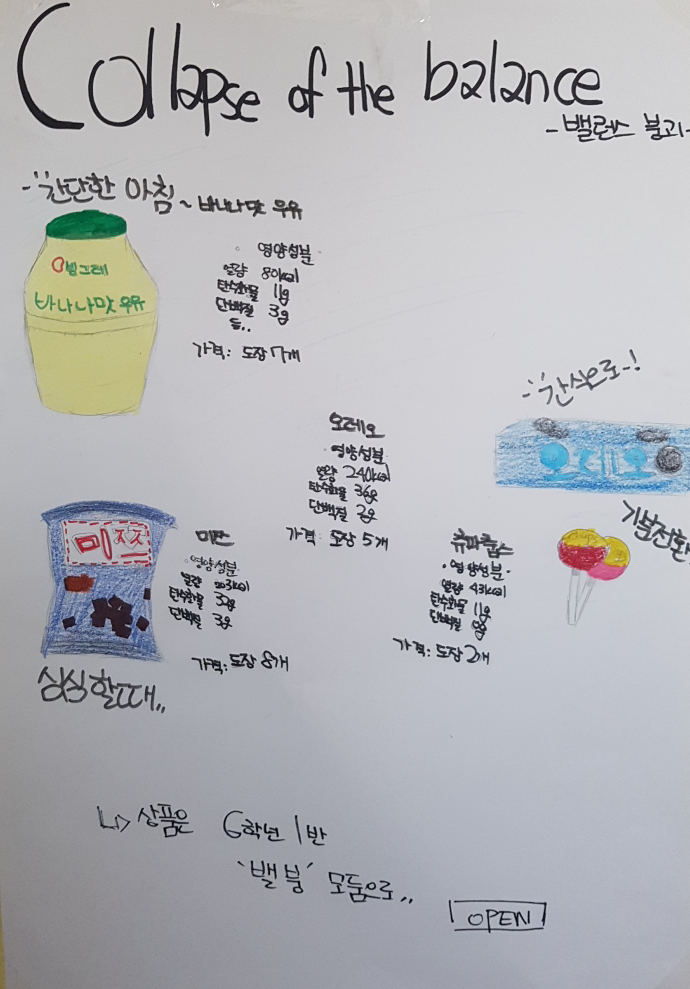 Collapse of the balance
-밸런스 붕괴-
간단한 아침 ~ 바나나맛 우유
빙그레
바나나맛 우유
영양성분
열량 80kcal
탄수화물 11g
단백질 3g
등..
가격: 도장 7개
간식으로-!
오레오
오레오
영양성분
열량 240kcal
탄수화물 36g
단백질 2g
가격: 도장 5개
기분전환
미쯔
미쯔
영양성분
탄수화물 32g
단백질 3g
가격: 도장 8개
심심할때..
츄파춥스
영양성분
열량 43kcal
탄수화물 11g
단백질 0g
가격: 도장 2개
상품은 6학년 1반
'밸붕' 모둠으로..
OPEN